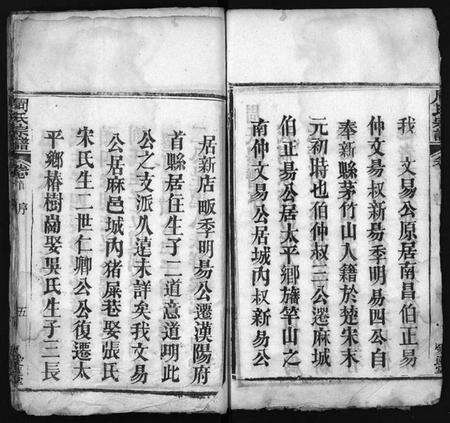 我 文易公原居南昌伯正易
仲文易叔新易季明易四公自
奉新縣茅竹山入籍於楚宋末
元初時也伯仲叔三公遷麻城
伯正易公居太平鄉旛竿山之
南仲文易公居城內叔新易公
居新店畈季明易公遷漢陽府
首縣居住生子二道意道明此
公之支派久遠未詳矣我文易
公居麻邑城內猪屎巷娶張氏
宋氏生一二世仁卿公公復遷太
平鄉椿樹崗娶吳氏生子二長
周氏宗譜
序
五